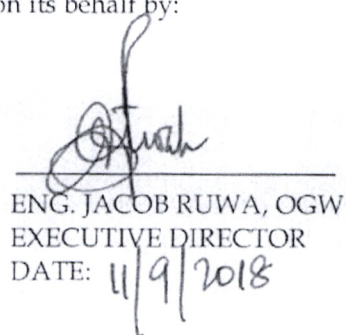 on its behalf by:
ENG. JACOB RUWA, OGW
EXECUTIVE DIRECTOR
DATE: 11/9/2018